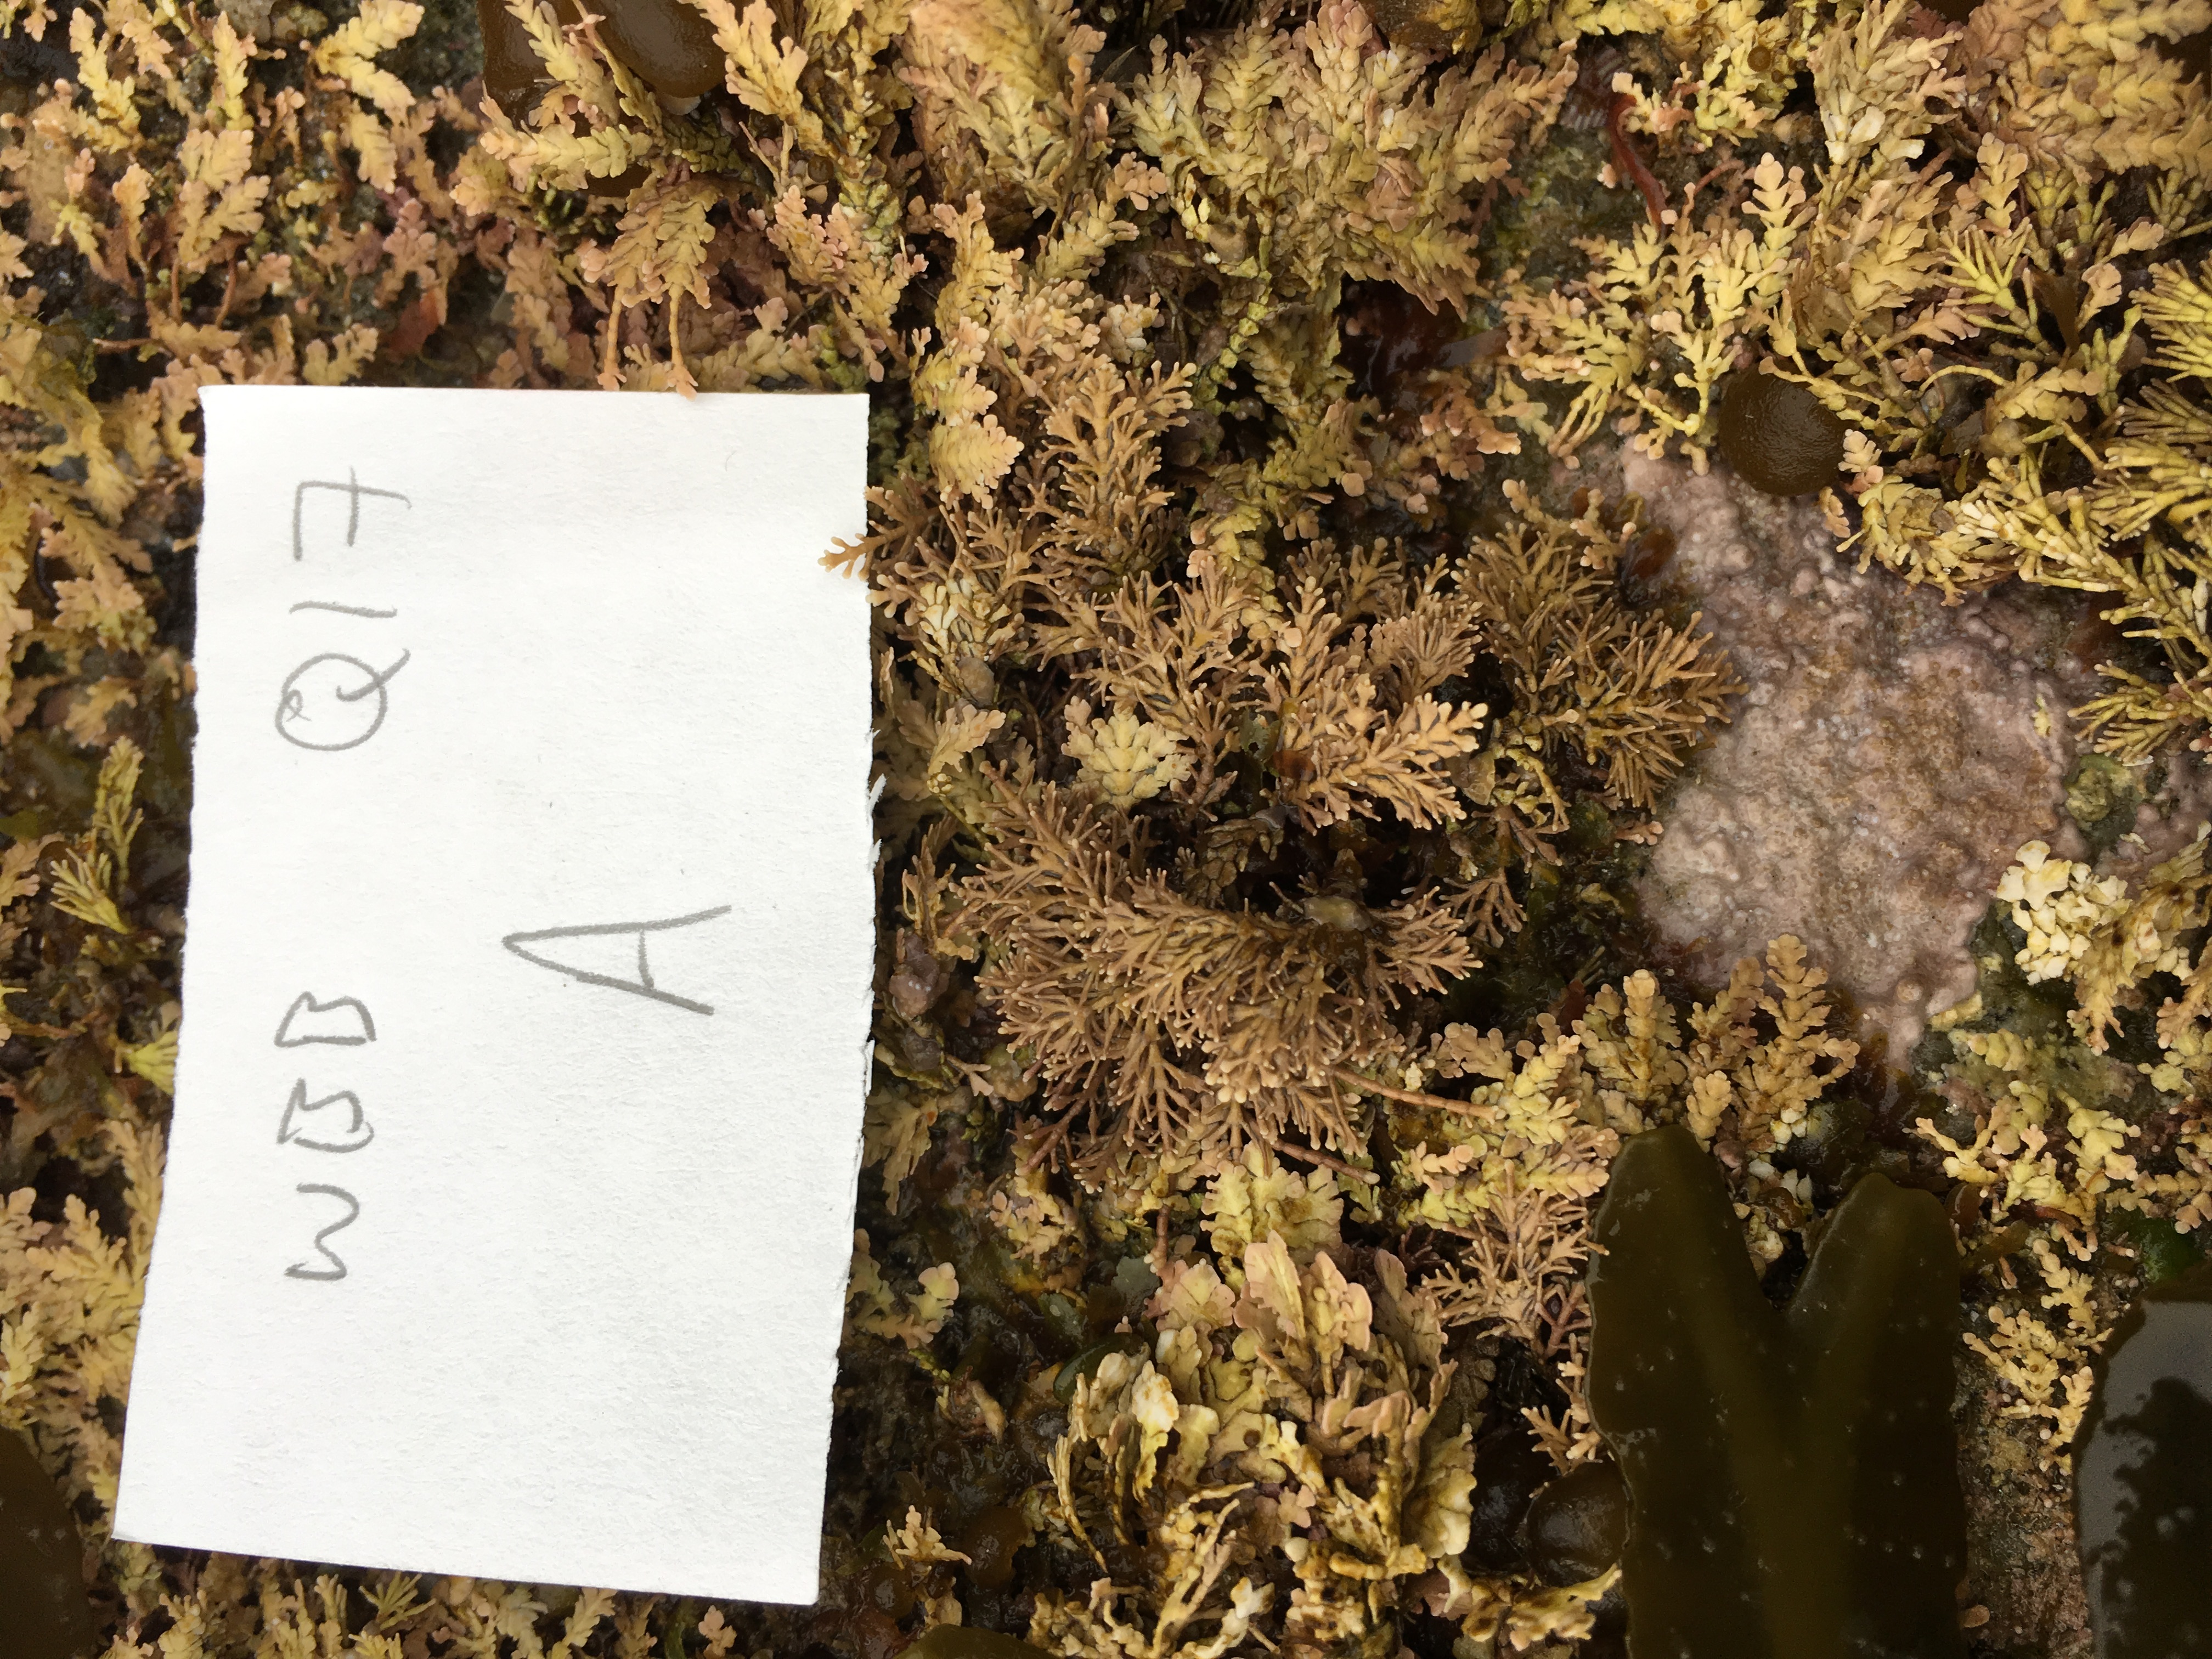 WBB Q17
A